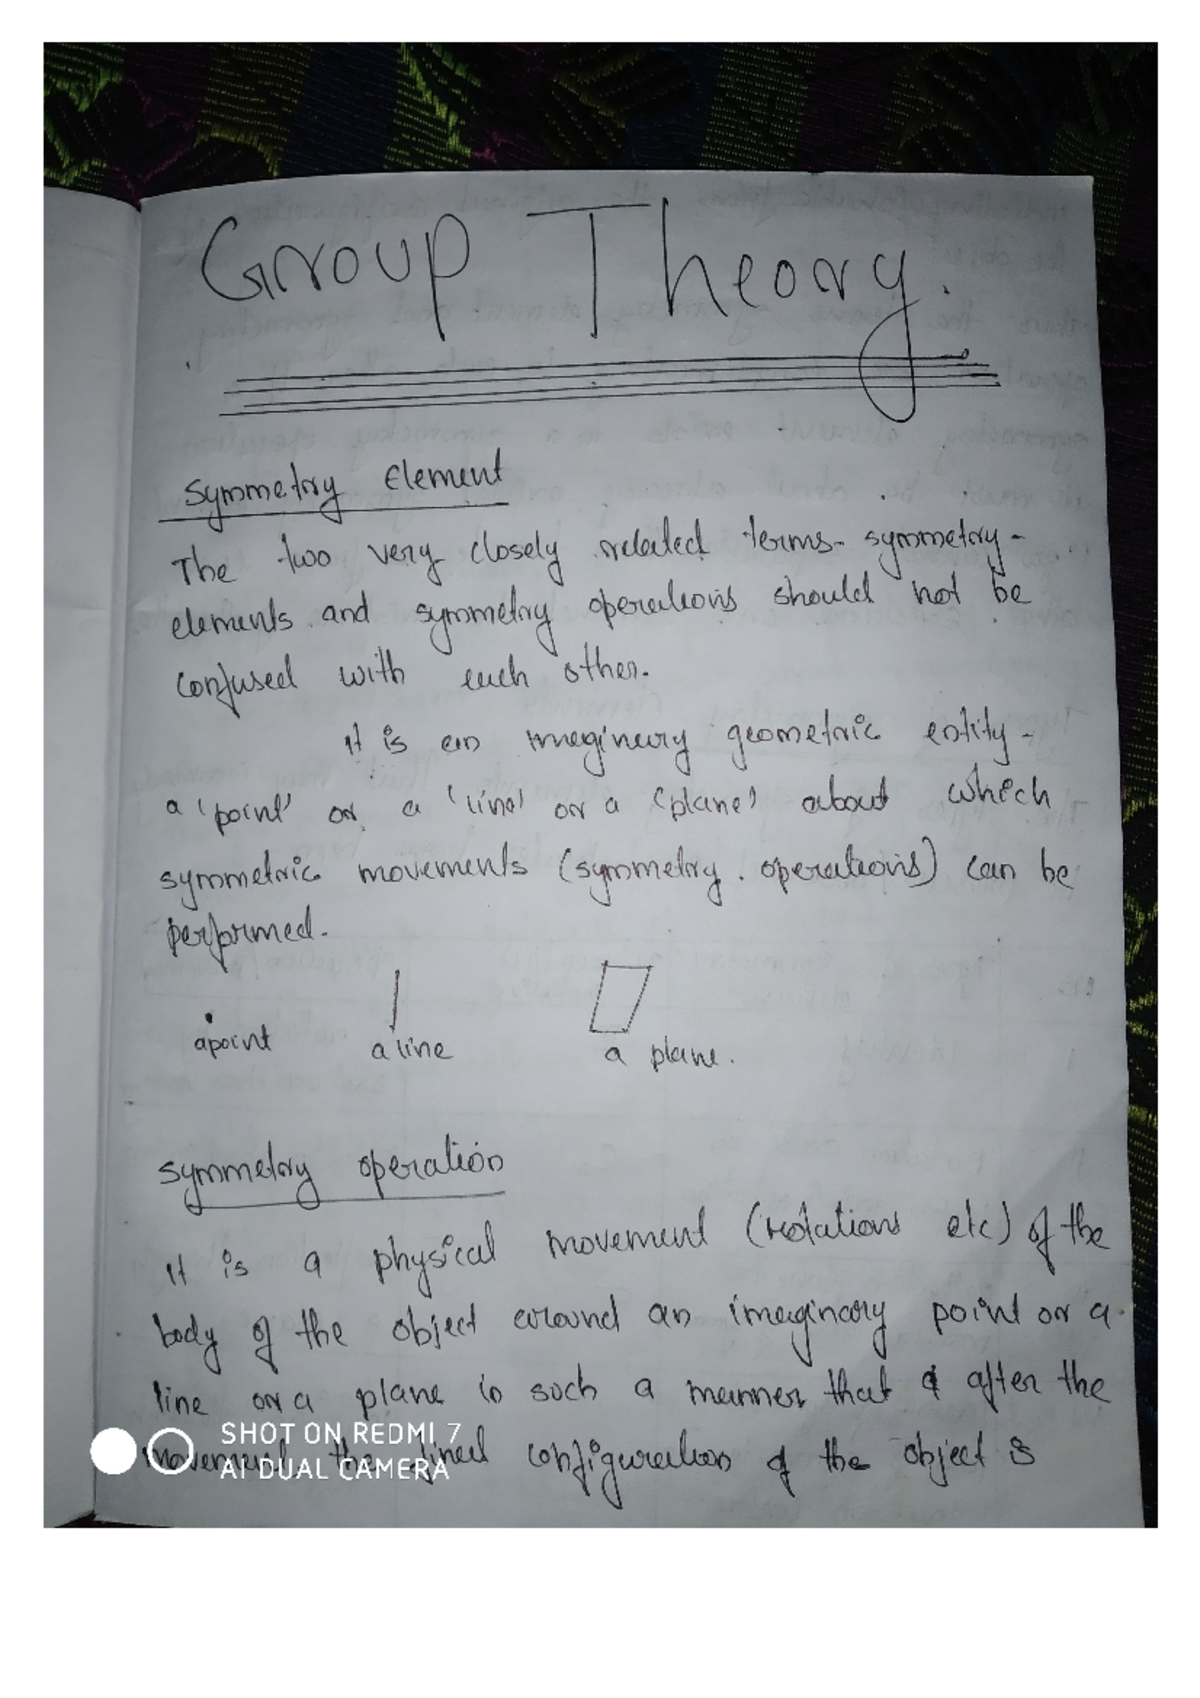 Group Theory.
Symmetry Element
The two very closely related terms- symmetry-
elements and symmetry operations should not be
confused with each other.
It is an imaginary geometric entity-
a 'point' or a 'line' or a 'plane' about which
symmetric movements (symmetry operations) can be
performed.
a point a line a plane.
Symmetry operation
It is a physical movement (rotations etc) of the
body of the object around an imaginary point or a
line or a plane in such a manner that after the
movement, the final configuration of the object is
SHOT ON REDMI 7
AI DUAL CAMERA